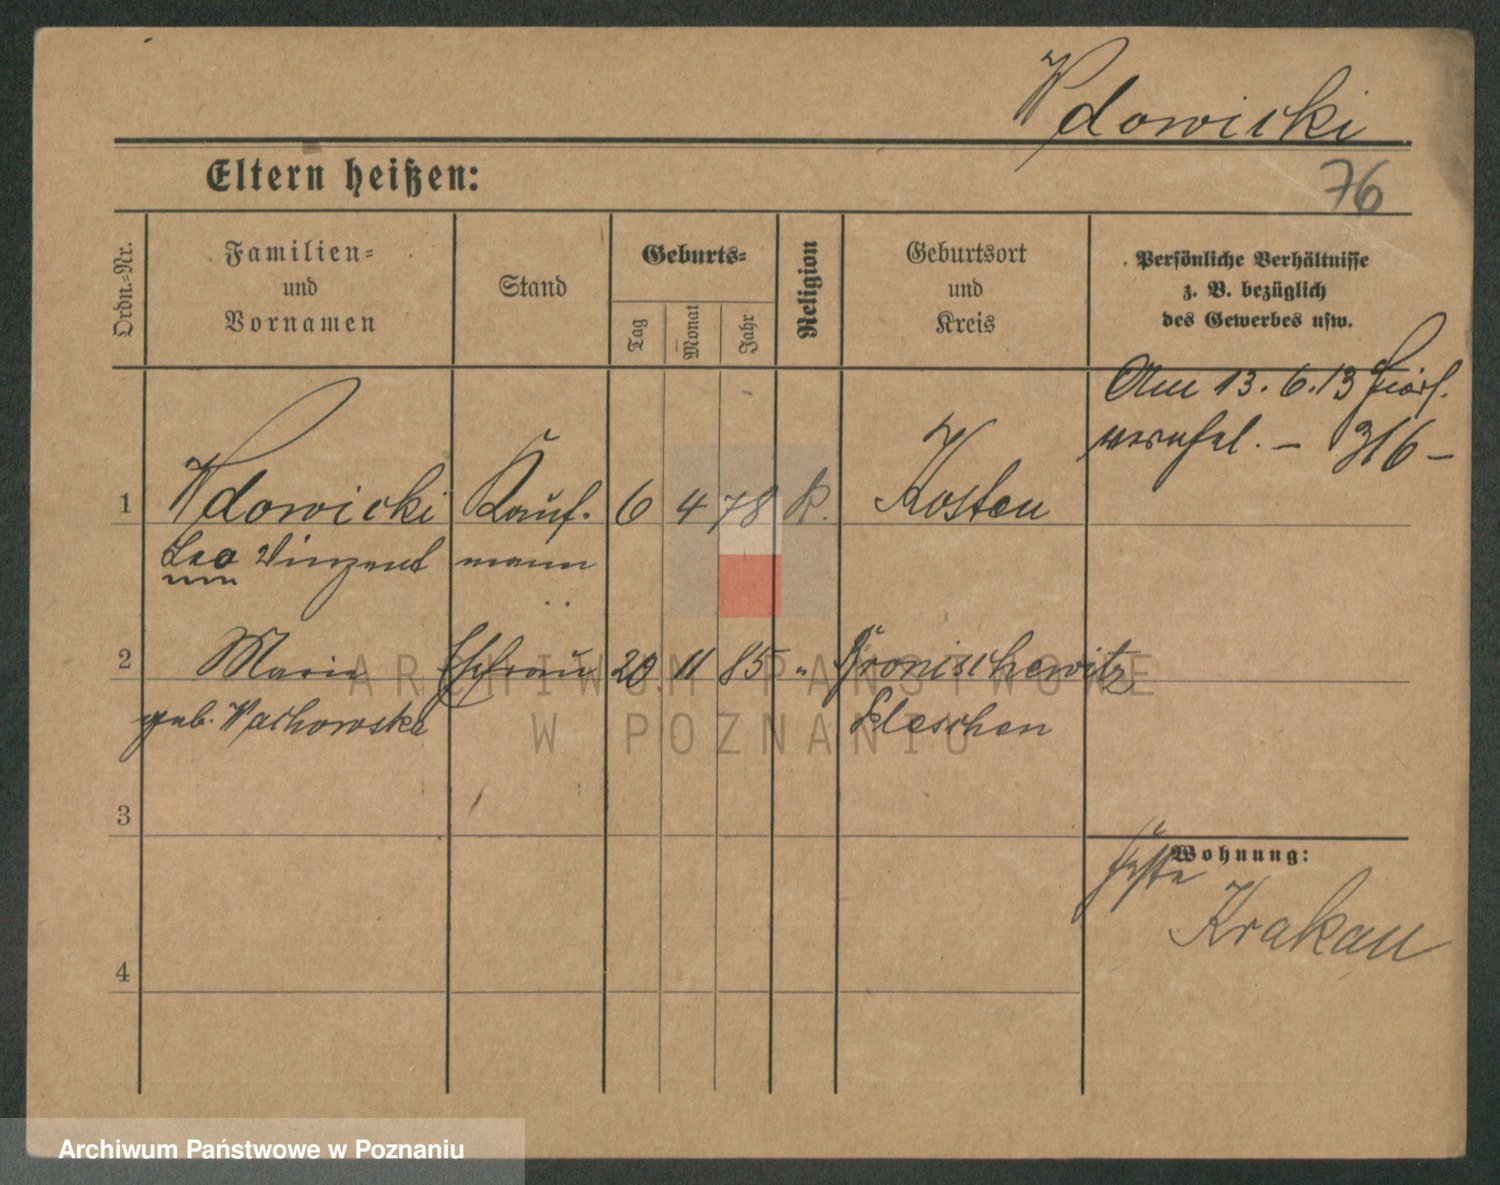 Wdowicki
Eltern heißen:
76
Ordn.-Nr.
Familien-
und
Vornamen
Stand
Geburts-
Tag
Monat
Jahr
Religion
Geburtsort
und
Kreis
Persönliche Verhältnisse
z. B. bezüglich
des Gewerbes usw.
Am 13. 6. 13
– 316 –
1 Wdowicki Kauf- 6 4 78 K. Kosten
Leo Vinzent mann
2 Maria Ehefrau 20 11 85 " Bronischewitz
geb. Wachowska Pleschen
3
Wohnung:
Krakau
4
ARCHIWUM PAŃSTWOWE
W POZNANIU
Archiwum Państwowe w Poznaniu